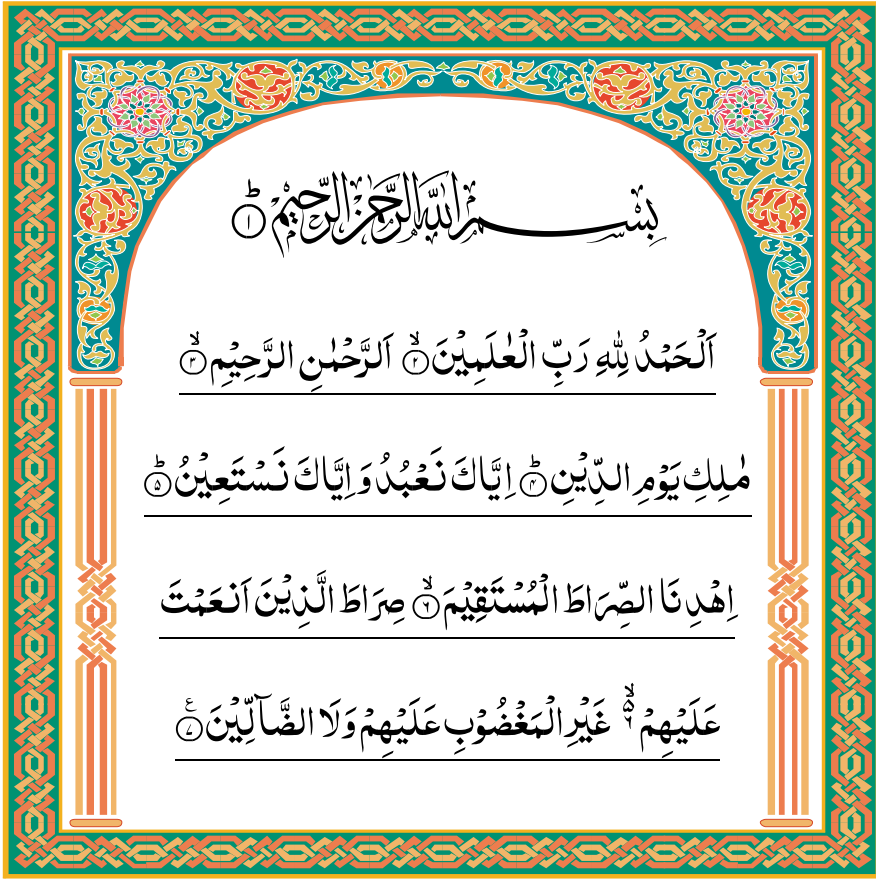 بِسْمِ اللهِ الرَّحْمٰنِ الرَّحِيْمِ ؕ﴿۱﴾
اَلْحَمْدُ لِلّٰهِ رَبِّ الْعٰلَمِيْنَ ۙ﴿۲﴾ اَلرَّحْمٰنِ الرَّحِيْمِ ۙ﴿۳﴾
مٰلِكِ يَوْمِ الدِّيْنِ ؕ﴿۴﴾ اِيَّاكَ نَعْبُدُ وَ اِيَّاكَ نَسْتَعِيْنُ ؕ﴿۵﴾
اِهْدِنَا الصِّرَاطَ الْمُسْتَقِيْمَ ۙ﴿۶﴾ صِرَاطَ الَّذِيْنَ اَنعَمْتَ
عَلَيْهِمْ ۙ۬ۦ غَيْرِ الْمَغْضُوْبِ عَلَيْهِمْ وَلَا الضَّآلِّيْنَ ࣖ﴿۷﴾